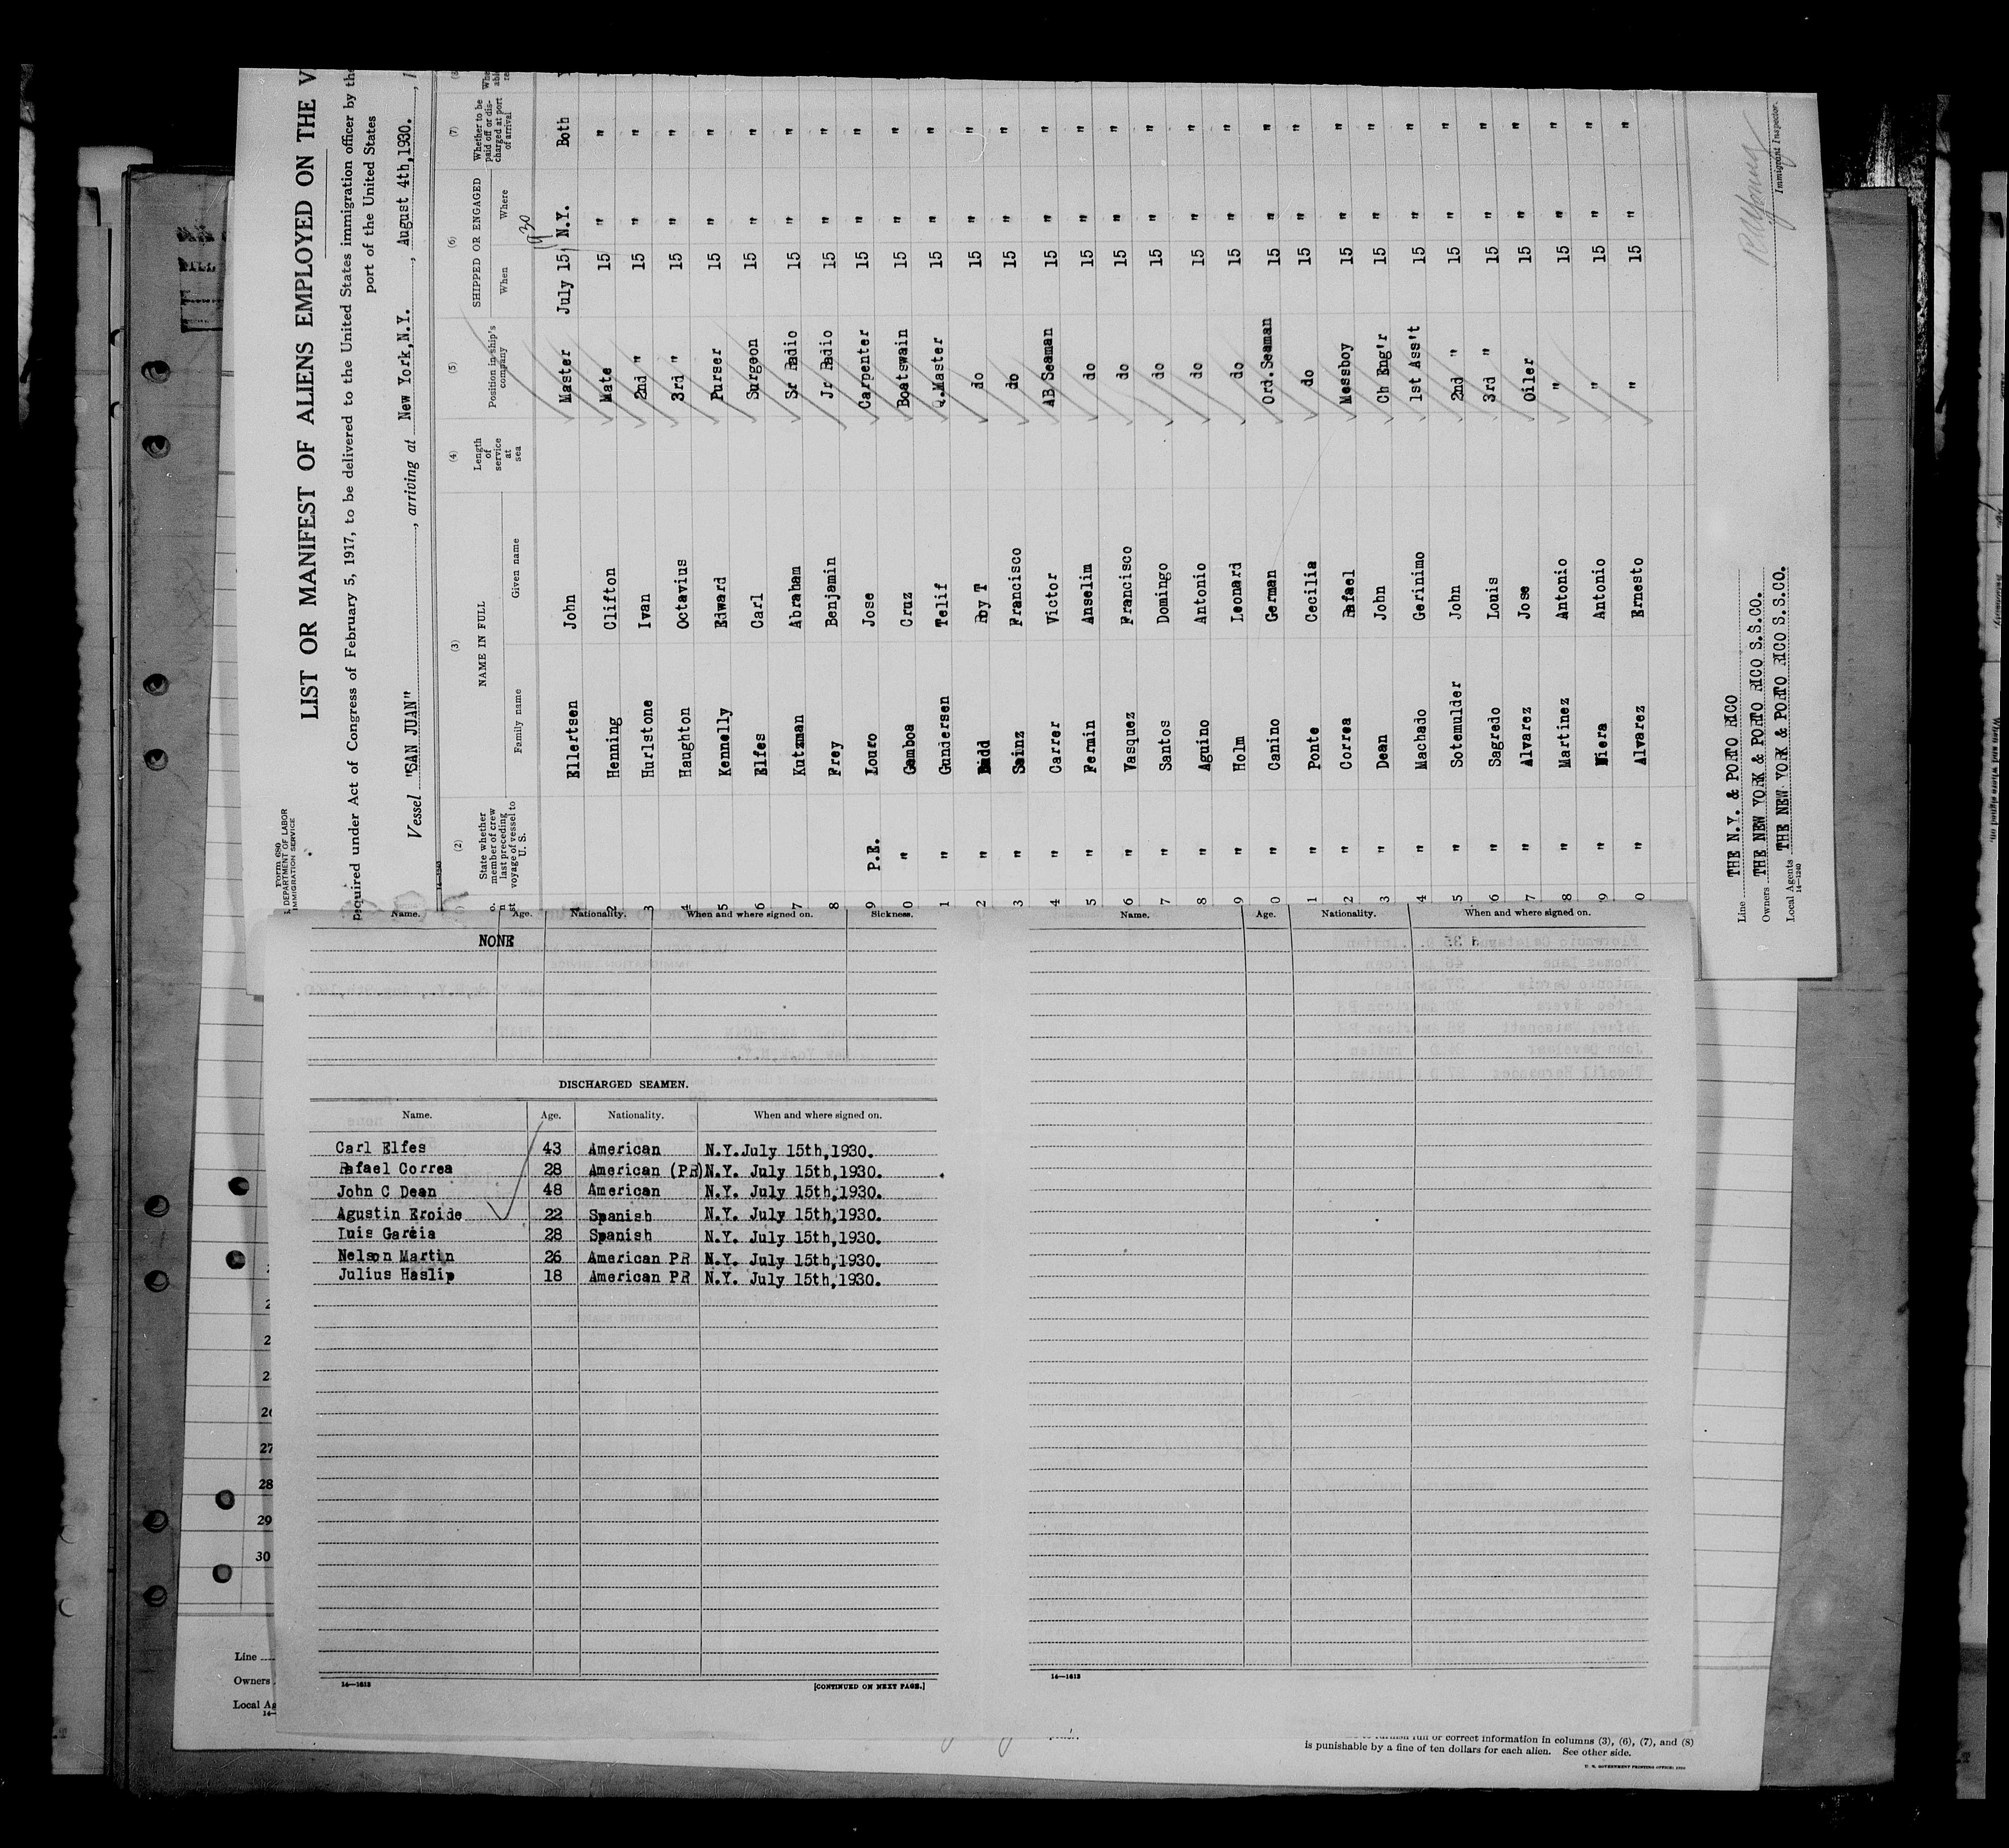 Form 680
DEPARTMENT OF LABOR
IMMIGRATION SERVICE
LIST OR MANIFEST OF ALIENS EMPLOYED ON THE V
Required under Act of Congress of February 5, 1917, to be delivered to the United States immigration officer by the
port of the United States
Vessel "SAN JUAN", arriving at New York, N.Y., August 4th, 1930.
(2) (3) (4) (5) (6) (7)
State whether member of crew last preceding voyage of vessel to U. S.
NAME IN FULL
Family name Given name
Length of service at sea
Position in ship's company
SHIPPED OR ENGAGED
When Where
Whether to be paid off or discharged at port of arrival
1930
Ellertsen John Master July 15 N.Y. Both
2 Henning Clifton Mate 15 " "
3 Hurlstone Ivan 2nd " 15 " "
4 Haughton Octavius 3rd " 15 " "
5 Kennelly Edward Purser 15 " "
6 Elfes Carl Surgeon 15 " "
7 Kutzman Abraham Sr Radio 15 " "
8 Frey Benjamin Jr Radio 15 " "
9 P.E. Louro Jose Carpenter 15 " "
0 " Gamboa Cruz Boatswain 15 " "
1 " Gundersen Telif Q.Master 15 " "
2 " Budd Roy T do 15 " "
3 " Sainz Francisco do 15 " "
4 " Carrer Victor AB Seaman 15 " "
5 " Fermin Anselim do 15 " "
6 " Vasquez Francisco do 15 " "
7 " Santos Domingo do 15 " "
8 " Aguino Antonio do 15 " "
9 " Holm Leonard do 15 " "
0 " Canino German Ord.Seaman 15 " "
1 " Ponte Cecilia do 15 " "
2 " Correa Rafael Messboy 15 " "
3 " Dean John Ch Eng'r 15 " "
4 " Machado Gerinimo 1st Ass't 15 " "
5 " Sotemulder John 2nd " 15 " "
6 " Sagredo Louis 3rd " 15 " "
7 " Alvarez Jose Oiler 15 " "
8 " Martinez Antonio " 15 " "
9 " Niera Antonio " 15 " "
0 " Alvarez Ernesto " 15 " "
Line THE N.Y. & PORTO RICO
Owners THE NEW YORK & PORTO RICO S.S.CO.
Local Agents THE NEW YORK & PORTO RICO S.S.CO.
14-1240
Immigrant Inspector.
Name. Age. Nationality. When and where signed on. Sickness.
NONE
DISCHARGED SEAMEN.
Name. Age. Nationality. When and where signed on.
Carl Elfes 43 American N.Y.July 15th,1930.
Rafael Correa 28 American (PR) N.Y. July 15th,1930.
John C Dean 48 American N.Y. July 15th,1930.
Agustin Eroide 22 Spanish N.Y. July 15th,1930.
Luis Garcia 28 Spanish N.Y. July 15th,1930.
Nelson Martin 26 American PR N.Y. July 15th,1930.
Julius Haslip 18 American PR N.Y. July 15th,1930.
14—1613
[CONTINUED ON NEXT PAGE.]
Name. Age. Nationality. When and where signed on.
14—1613
27
28
29
30
Line
Owners
Local Ag
14-
full or correct information in columns (3), (6), (7), and (8)
is punishable by a fine of ten dollars for each alien. See other side.
U. S. GOVERNMENT PRINTING OFFICE: